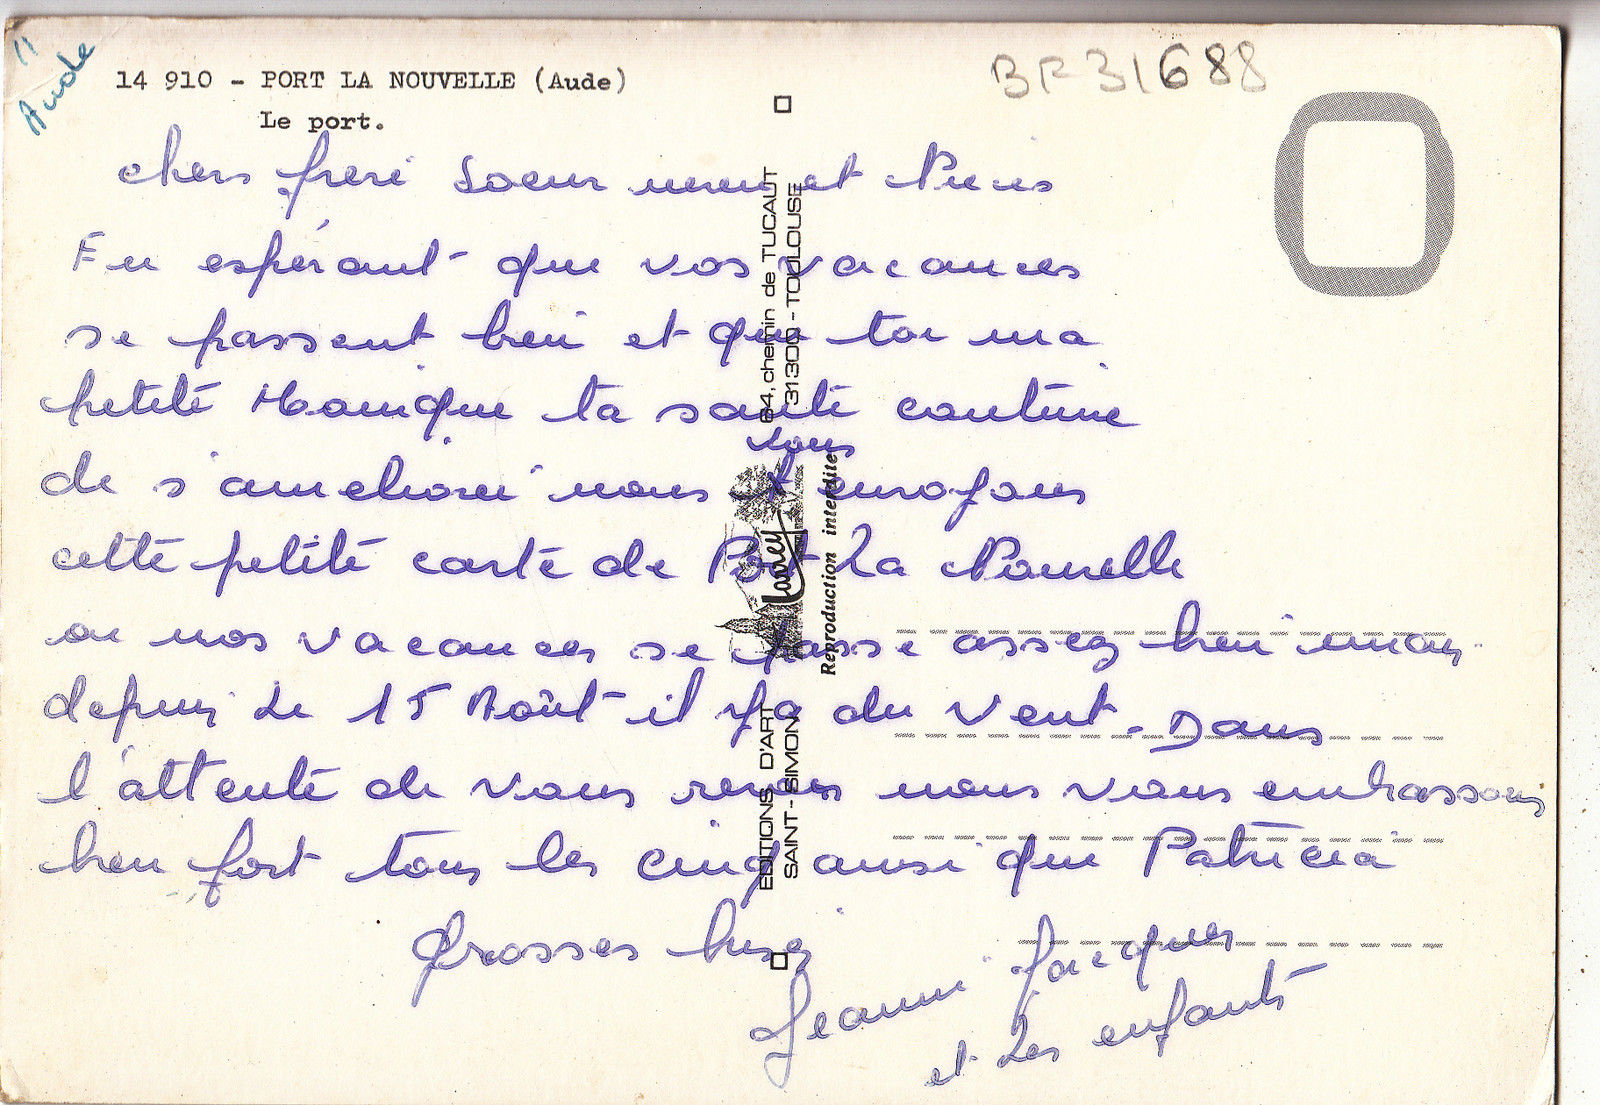 11
Aude
14 910 - PORT LA NOUVELLE (Aude)
Le port.
BF31688
chers frere soeur neveu et Nieces
En espérant que vos vacances
se passent bien et que toi ma
petite Monique ta santé continue
de s'ameliorer nous vous envoyons
cette petite carte de Port La Nouvelle
ou nos vacances se passe assez bien
depuis Le 15 Août il y a du vent. Dans
l'attente de vous nous vous embrassons
bien fort tous les cinq ainsi que Patricia
Grosses bises
Jeannine Jacques
et Les enfants
EDITIONS D'ART
64, chemin de TUCAUT
SAINT-SIMON
31300 - TOULOUSE
Larrey
Reproduction interdite